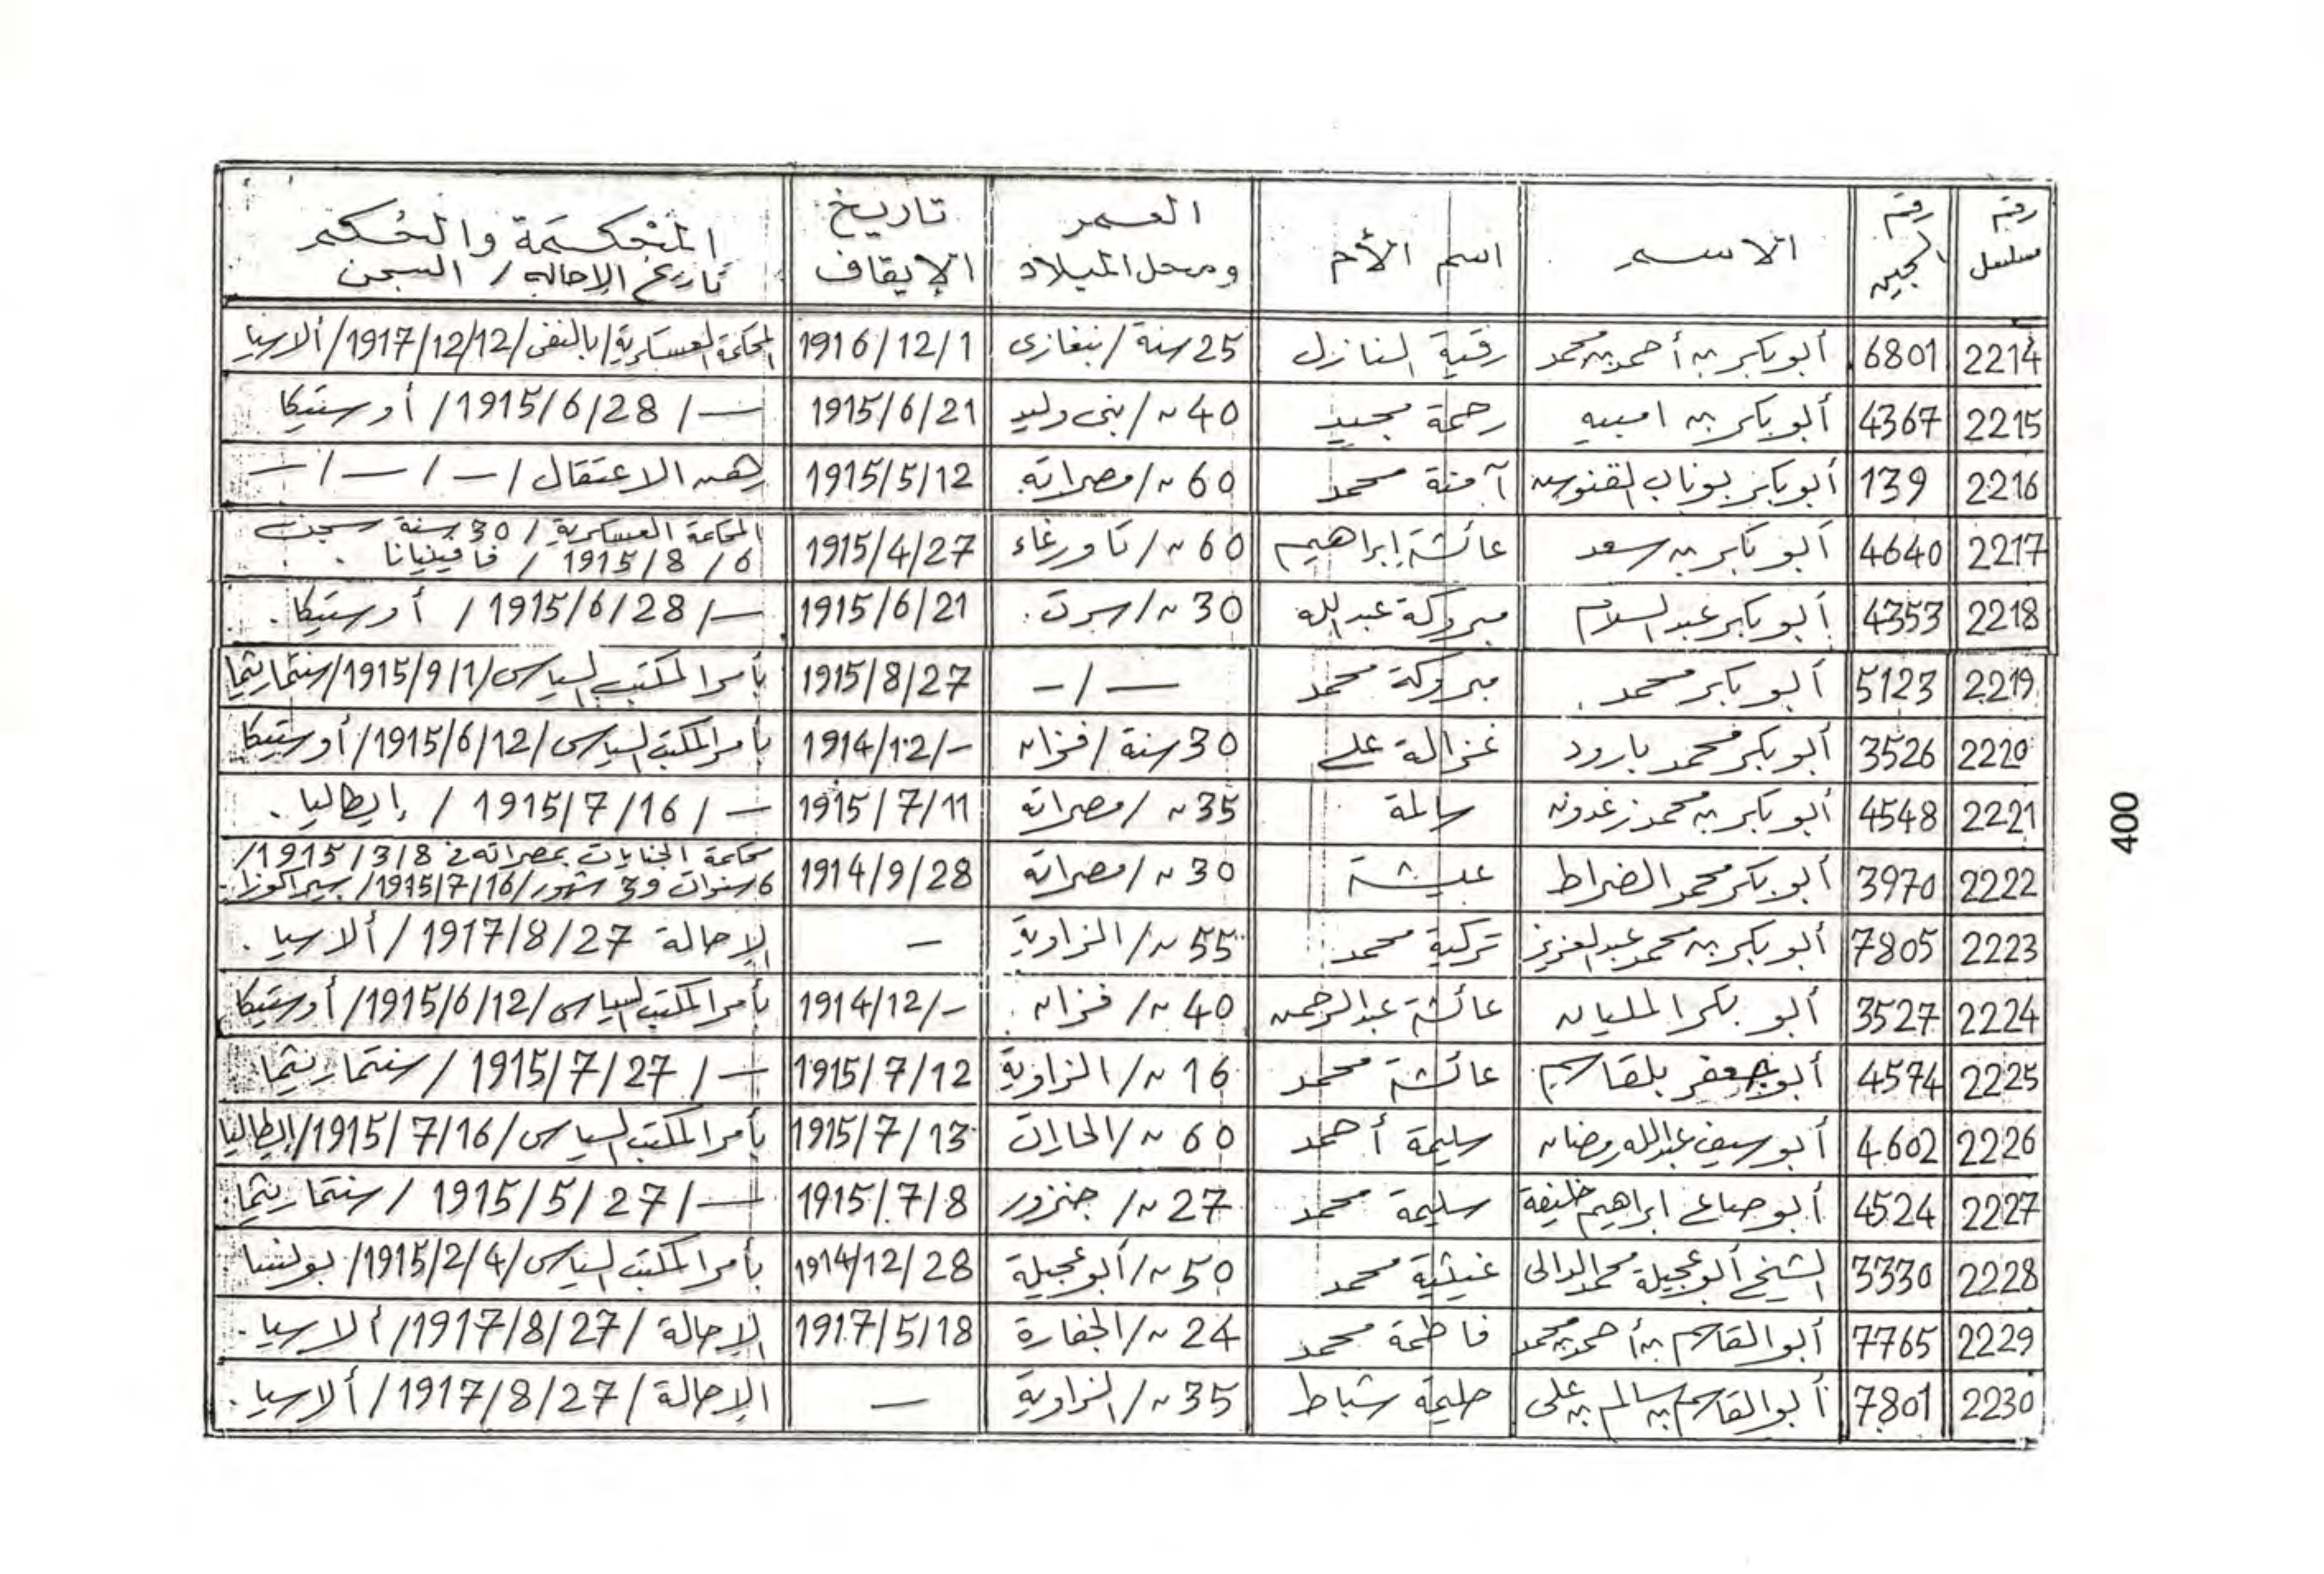 رقم مسلسل | رقم السجين | الاسم | اسم الأم | العمر ومحل الميلاد | تاريخ الإيقاف | المحكمة والحكم تاريخ الإحالة / السجن
2214 | 6801 | أبوبكر بن أحمد بن محمد | رقية النازل | 25 سنة / بنغازى | 1916/12/1 | المحكمة العسكرية / بالنفى / 1917/12/12 / ألارسيا
2215 | 4367 | أبوبكر بن امبيه | رحمة مجيد | 40 ~ / بنى وليد | 1915/6/21 | — / 1915/6/28 / أوستيكا
2216 | 139 | أبوبكر بوناب | آمنة محمد | 60 ~ / مصراته | 1915/5/12 | رهن الاعتقال / — / — / —
2217 | 4640 | أبو بكر بن سعد | عائشة إبراهيم | 60 ~ / تاورغاء | 1915/4/27 | المحكمة العسكرية / 30 سنة سجن
6 / 8 / 1915 / فافينيانا .
2218 | 4353 | أبو بكر عبد السلام | مبروكة عبد الله | 30 ~ / سرت . | 1915/6/21 | — / 1915/6/28 / أوستيكا .
2219 | 5123 | أبو بكر محمد . | مبروكة محمد | — / — | 1915/8/27 | بأمر المكتب السياسى / 1915/9/1 / سنتماريتما
2220 | 3526 | أبوبكر محمد بارود | غزالة على | 30 سنة / فزان | 1914/12/- | بأمر المكتب السياسى / 1915/6/12 / أوستيكا
2221 | 4548 | أبو بكر بن محمد زغدون | سالمة | 35 ~ / مصراته | 1915/7/11 | — / 1915/7/16 / إيطاليا .
2222 | 3970 | أبوبكر محمد الضراط | عيشة | 30 ~ / مصراته | 1914/9/28 | محكمة الجنايات بمصراته فى 1915/3/8 /
6 سنوات و3 شهور / 1915/7/16 / سيراكوزا .
2223 | 7805 | أبوبكر بن محمد عبد العزيز | تركية محمد | 55 ~ / الزاوية | — | الإحالة 1917/8/27 / ألارسيا .
2224 | 3527 | أبو بكر المليان | عائشة عبد الرحمن | 40 ~ / فزان . | 1914/12/- | بأمر المكتب السياسى / 1915/6/12 / أوستيكا
2225 | 4574 | أبو جعفر بلقاسم | عائشة محمد | 16 ~ / الزاوية | 1915/7/12 | — / 1915/7/27 / سنتماريتما
2226 | 4602 | أبو سيف عبد الله رمضان | سليمة أحمد | 60 ~ / الحارات | 1915/7/13 | بأمر المكتب السياسى / 1915/7/16 / إيطاليا
2227 | 4524 | أبو صباع ابراهيم خليفة | سليمة محمد | 27 ~ / جنزور | 1915/7/8 | — / 1915/5/27 / سنتماريتما .
2228 | 3330 | الشيخ أبو عجيلة محمد الدالى | محمد | 50 ~ / أبو عجيلة | 1914/12/28 | بأمر المكتب السياسى / 1915/2/4 / بونسا
2229 | 7765 | أبو القاسم بن أحمد بن محمد | فاطمة محمد | 24 ~ / الجفارة | 1917/5/18 | الإحالة / 1917/8/27 / ألارسيا .
2230 | 7801 | أبو القاسم بن سالم بن على | حليمة شباط | 35 ~ / الزاوية | — | الإحالة / 1917/8/27 / ألارسيا .
400